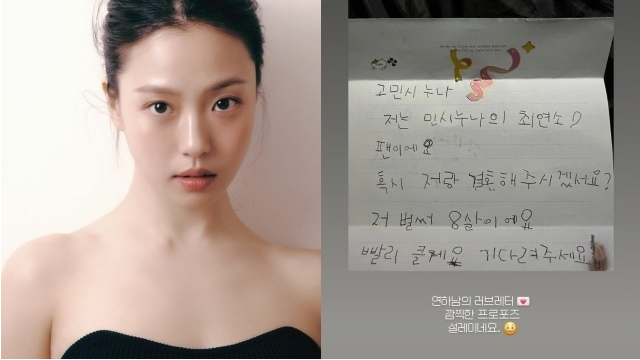 고민시 누나
저는 민시누나의 최연소
팬이에요
혹시 저랑 결혼해주시겠서요?
저 벌써 8살이에요
빨리 클게요 기다려주세요
연하남의 러브레터 💌
깜찍한 프로포즈
설레이네요. 😳